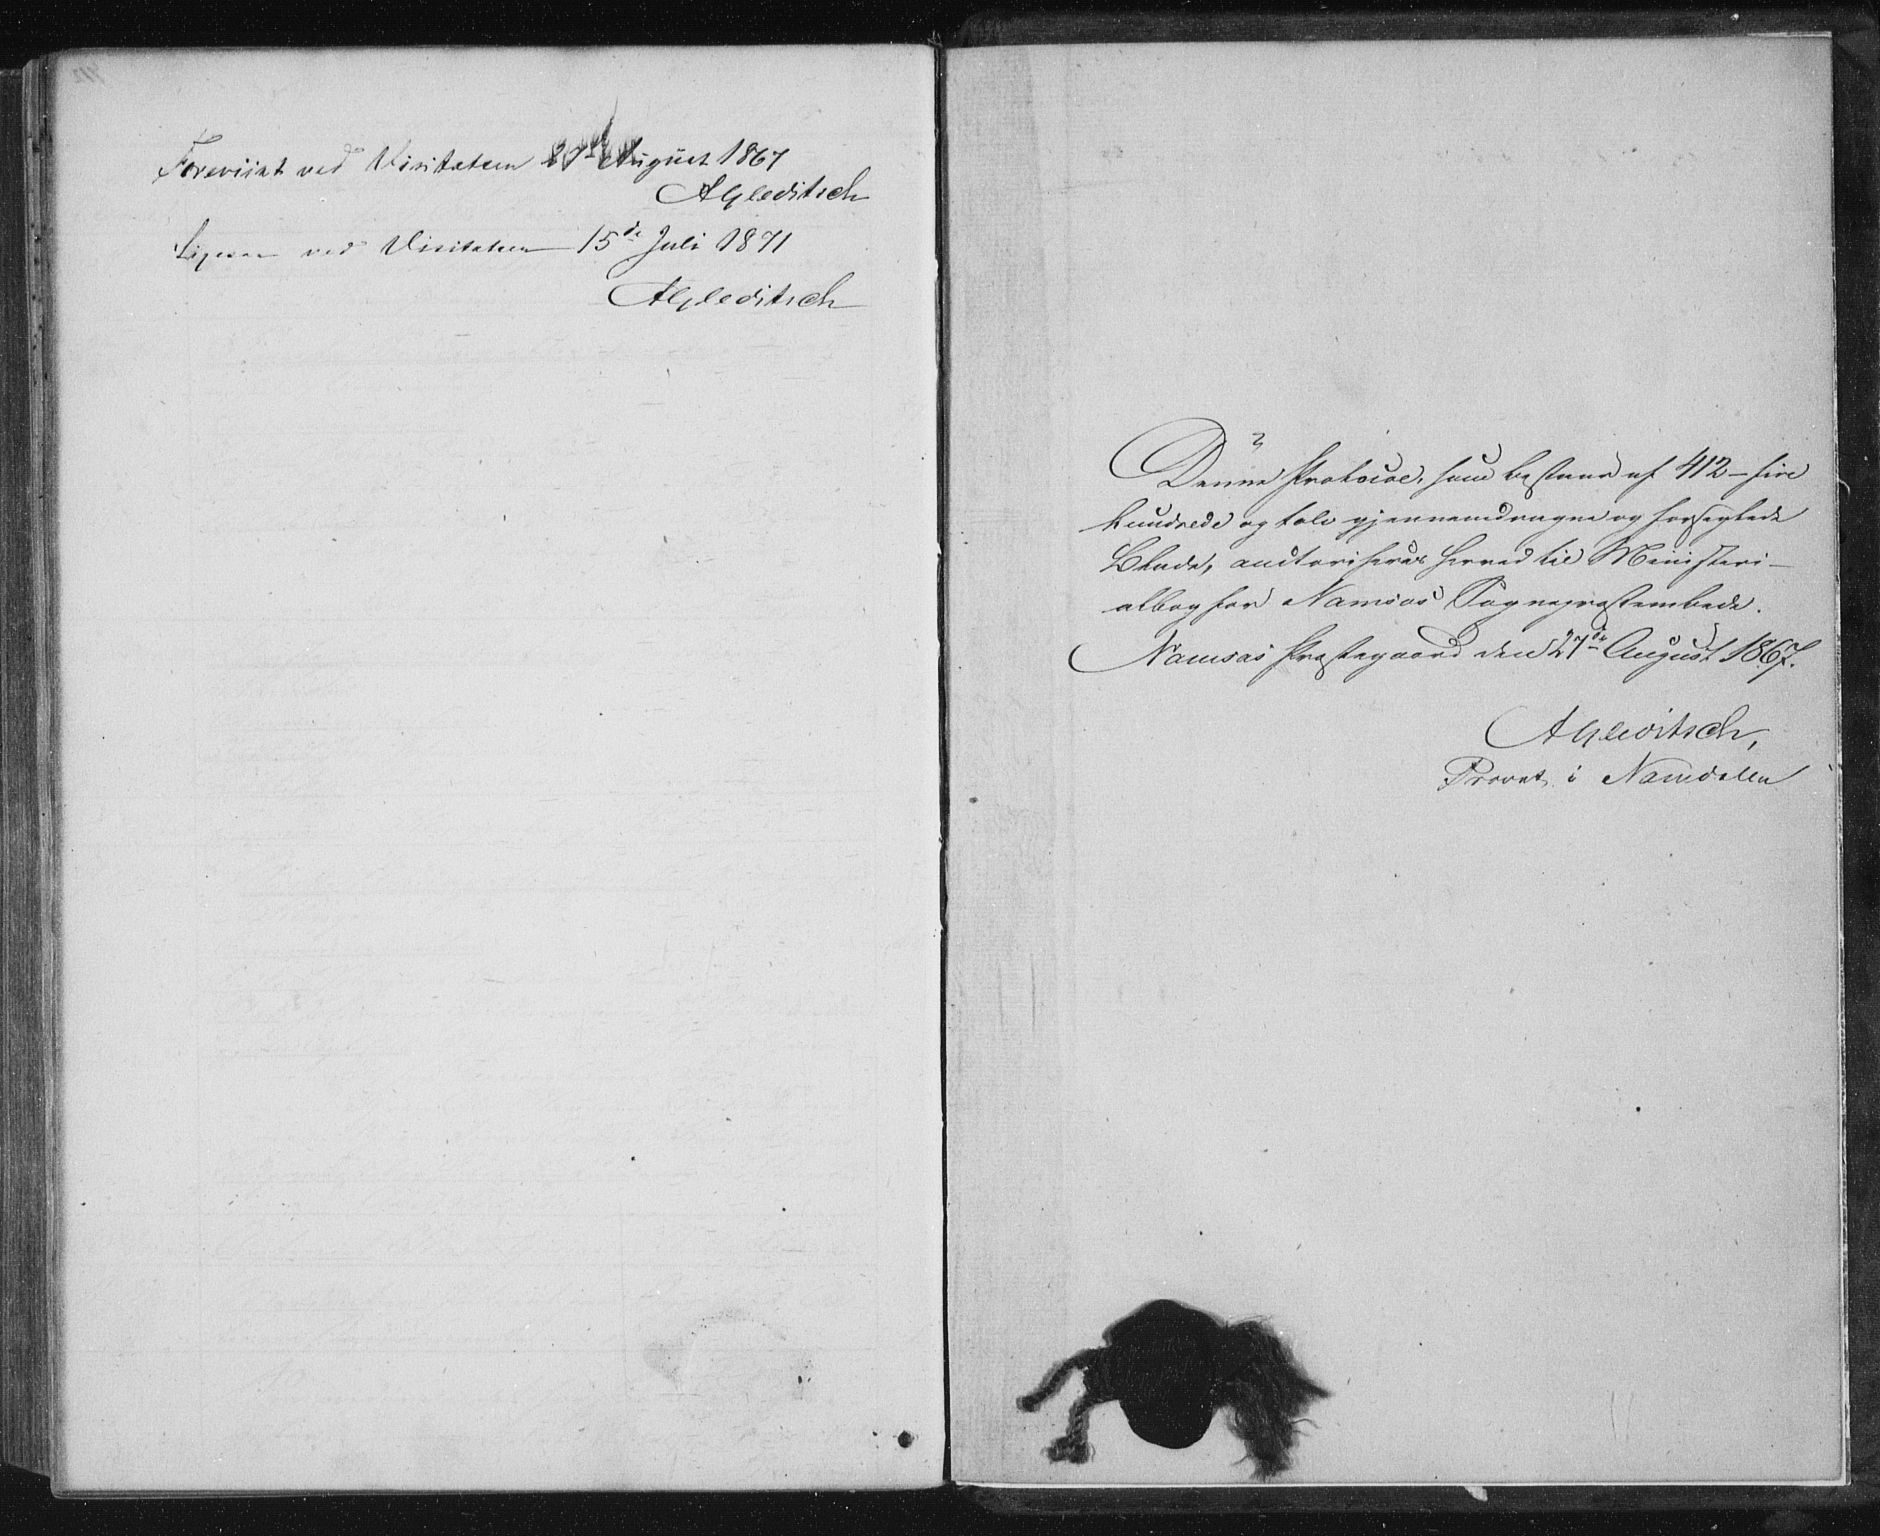 Foreviist ved Visitatsen August 1867
AGleditsch
Ligesaa ved Visitatsen 15de Juli 1871
AGleditsch
Denne Protocol, som bestaar af 412 – fire
hundrede og tolv gjennemdragne og forseglede
Blade, auctoriseres herved til Ministeri-
albog for Namsos Sognepræstembede.
Namsos Præstegaard den 27de August 1867.
AGleditsch,
Provst i Namdalen